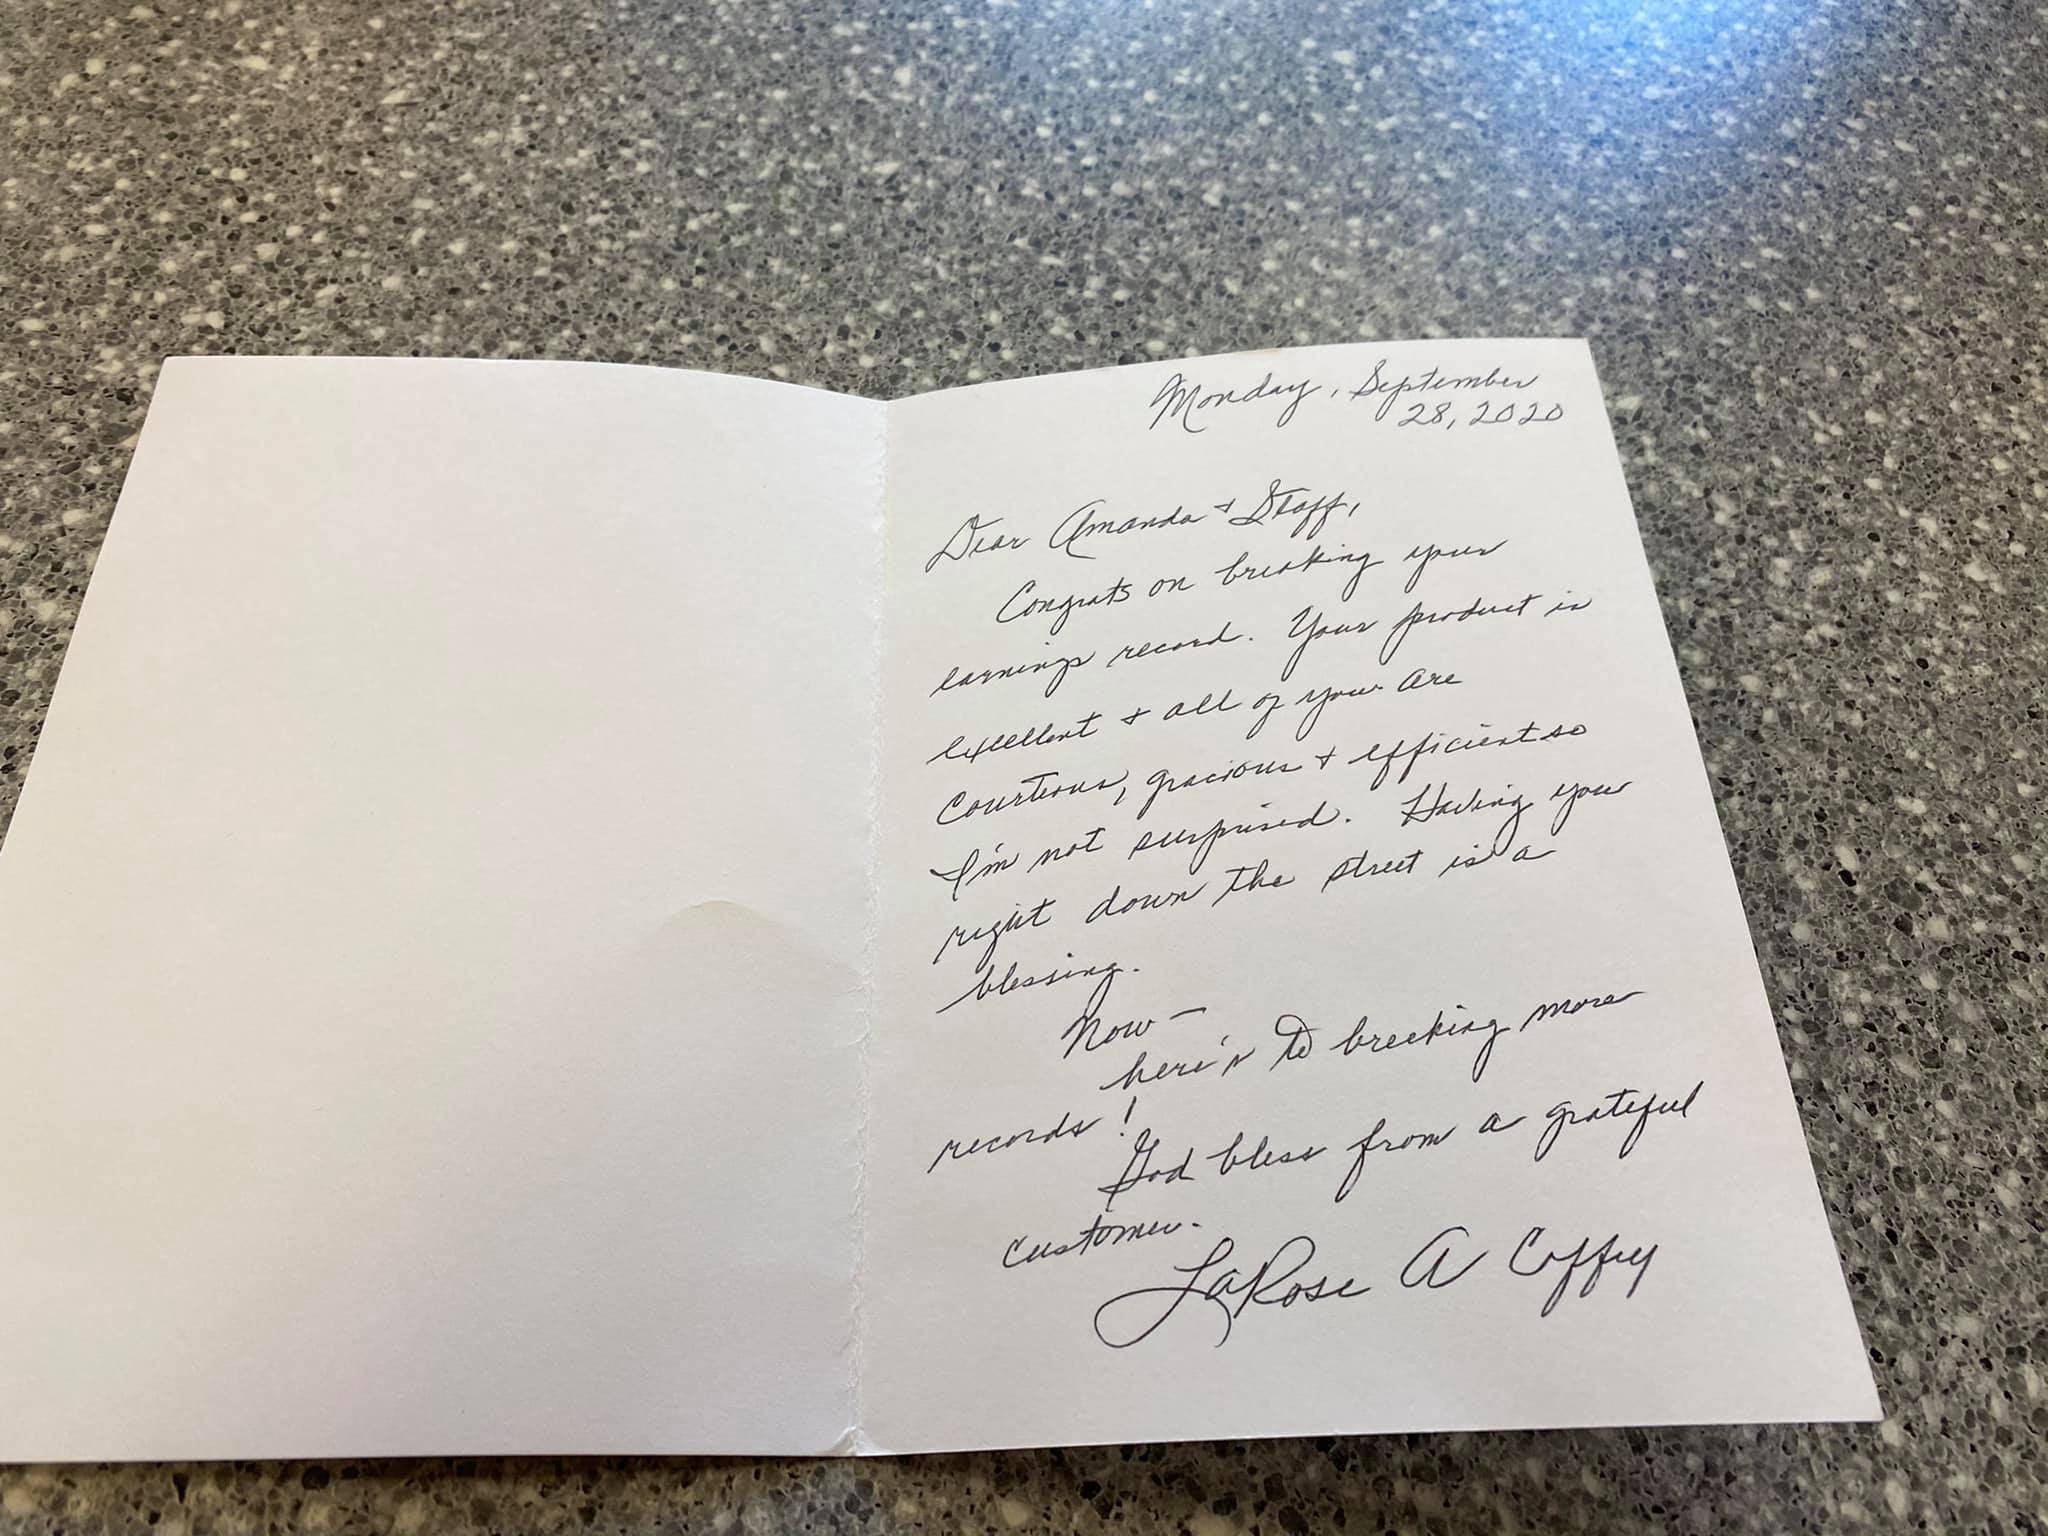 Monday, September
28, 2020
Dear Amanda + Staff,
Congrats on breaking your
earnings record. Your product is
excellent + all of you are
courteous, gracious + efficient so
I'm not surprised. Having you
right down the street is a
blessing.
Now —
here's to breaking more
records!
God bless from a grateful
customer.
LaRose A Coffey